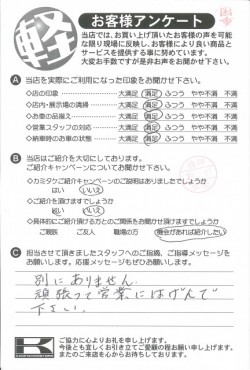 軽
お客様アンケート
当店では、お買い上げ頂いたお客様の声を可能
な限り現場に反映し、お客様により良い商品と
サービスを提供する事に努めています。
大変お手数ですが是非お声をお聞かせ下さい。
A 当店を実際にご利用になった印象をお聞かせ下さい。
◇店の印象 大満足 満足 ふつう やや不満 不満
◇店内・展示場の清掃 大満足 満足 ふつう やや不満 不満
◇お車の品揃え 大満足 満足 ふつう やや不満 不満
◇営業スタッフの対応 大満足 満足 ふつう やや不満 不満
◇納車時のお車の状態 大満足 満足 ふつう やや不満 不満
B 当店はご紹介を大切にしております。
ご紹介キャンペーンについてお聞かせ下さい。
◇カミタケご紹介キャンペーンのご説明はありましたでしょうか
はい いいえ
◇ご紹介を頂けますでしょうか
はい いいえ
◇具体的にご紹介頂ける方とのご関係をお聞かせ頂けますでしょうか
ご親戚 ご友人 職場の方 機会があれば紹介したい
C 担当させて頂きましたスタッフへのご指摘、ご指導メッセージを
お願いします。応援メッセージもぜひお願いします。
別にありません。
頑張って営業にはげんで
下さい。
K
ご協力に心よりお礼を申し上げます。
今後とも宜しくお引き立てご愛顧の程お願い申し上げます。
またのご来店を心からお待ちしております。